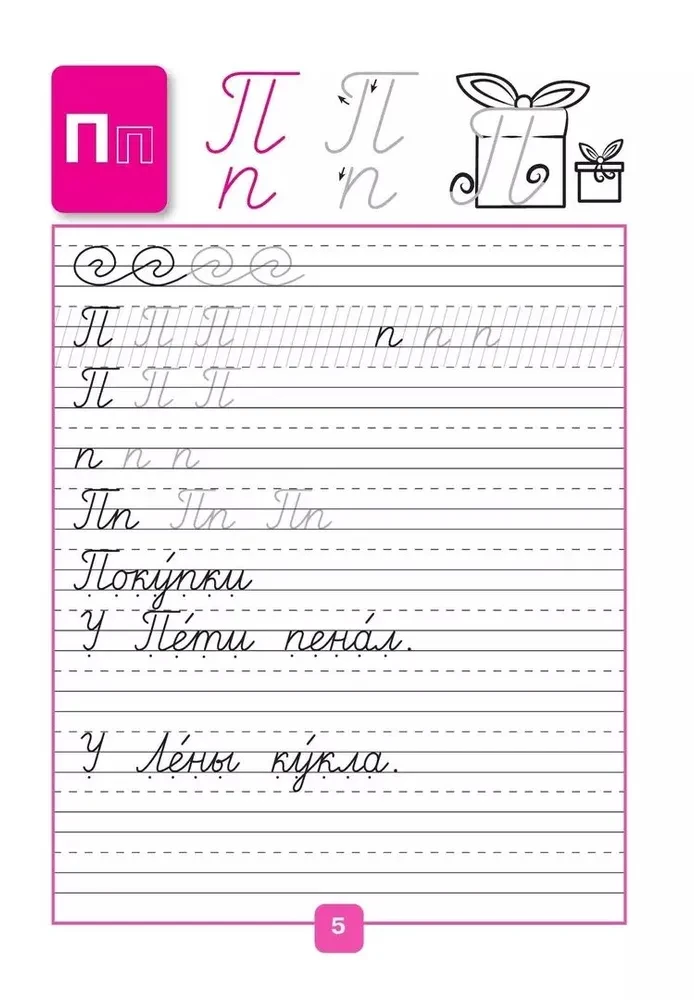 Пп
П П П
п п
П П П п п п
П П П
п п п
Пп Пп Пп
Поку́пки
У Пе́ти пена́л.
У Ле́ны ку́кла.
5